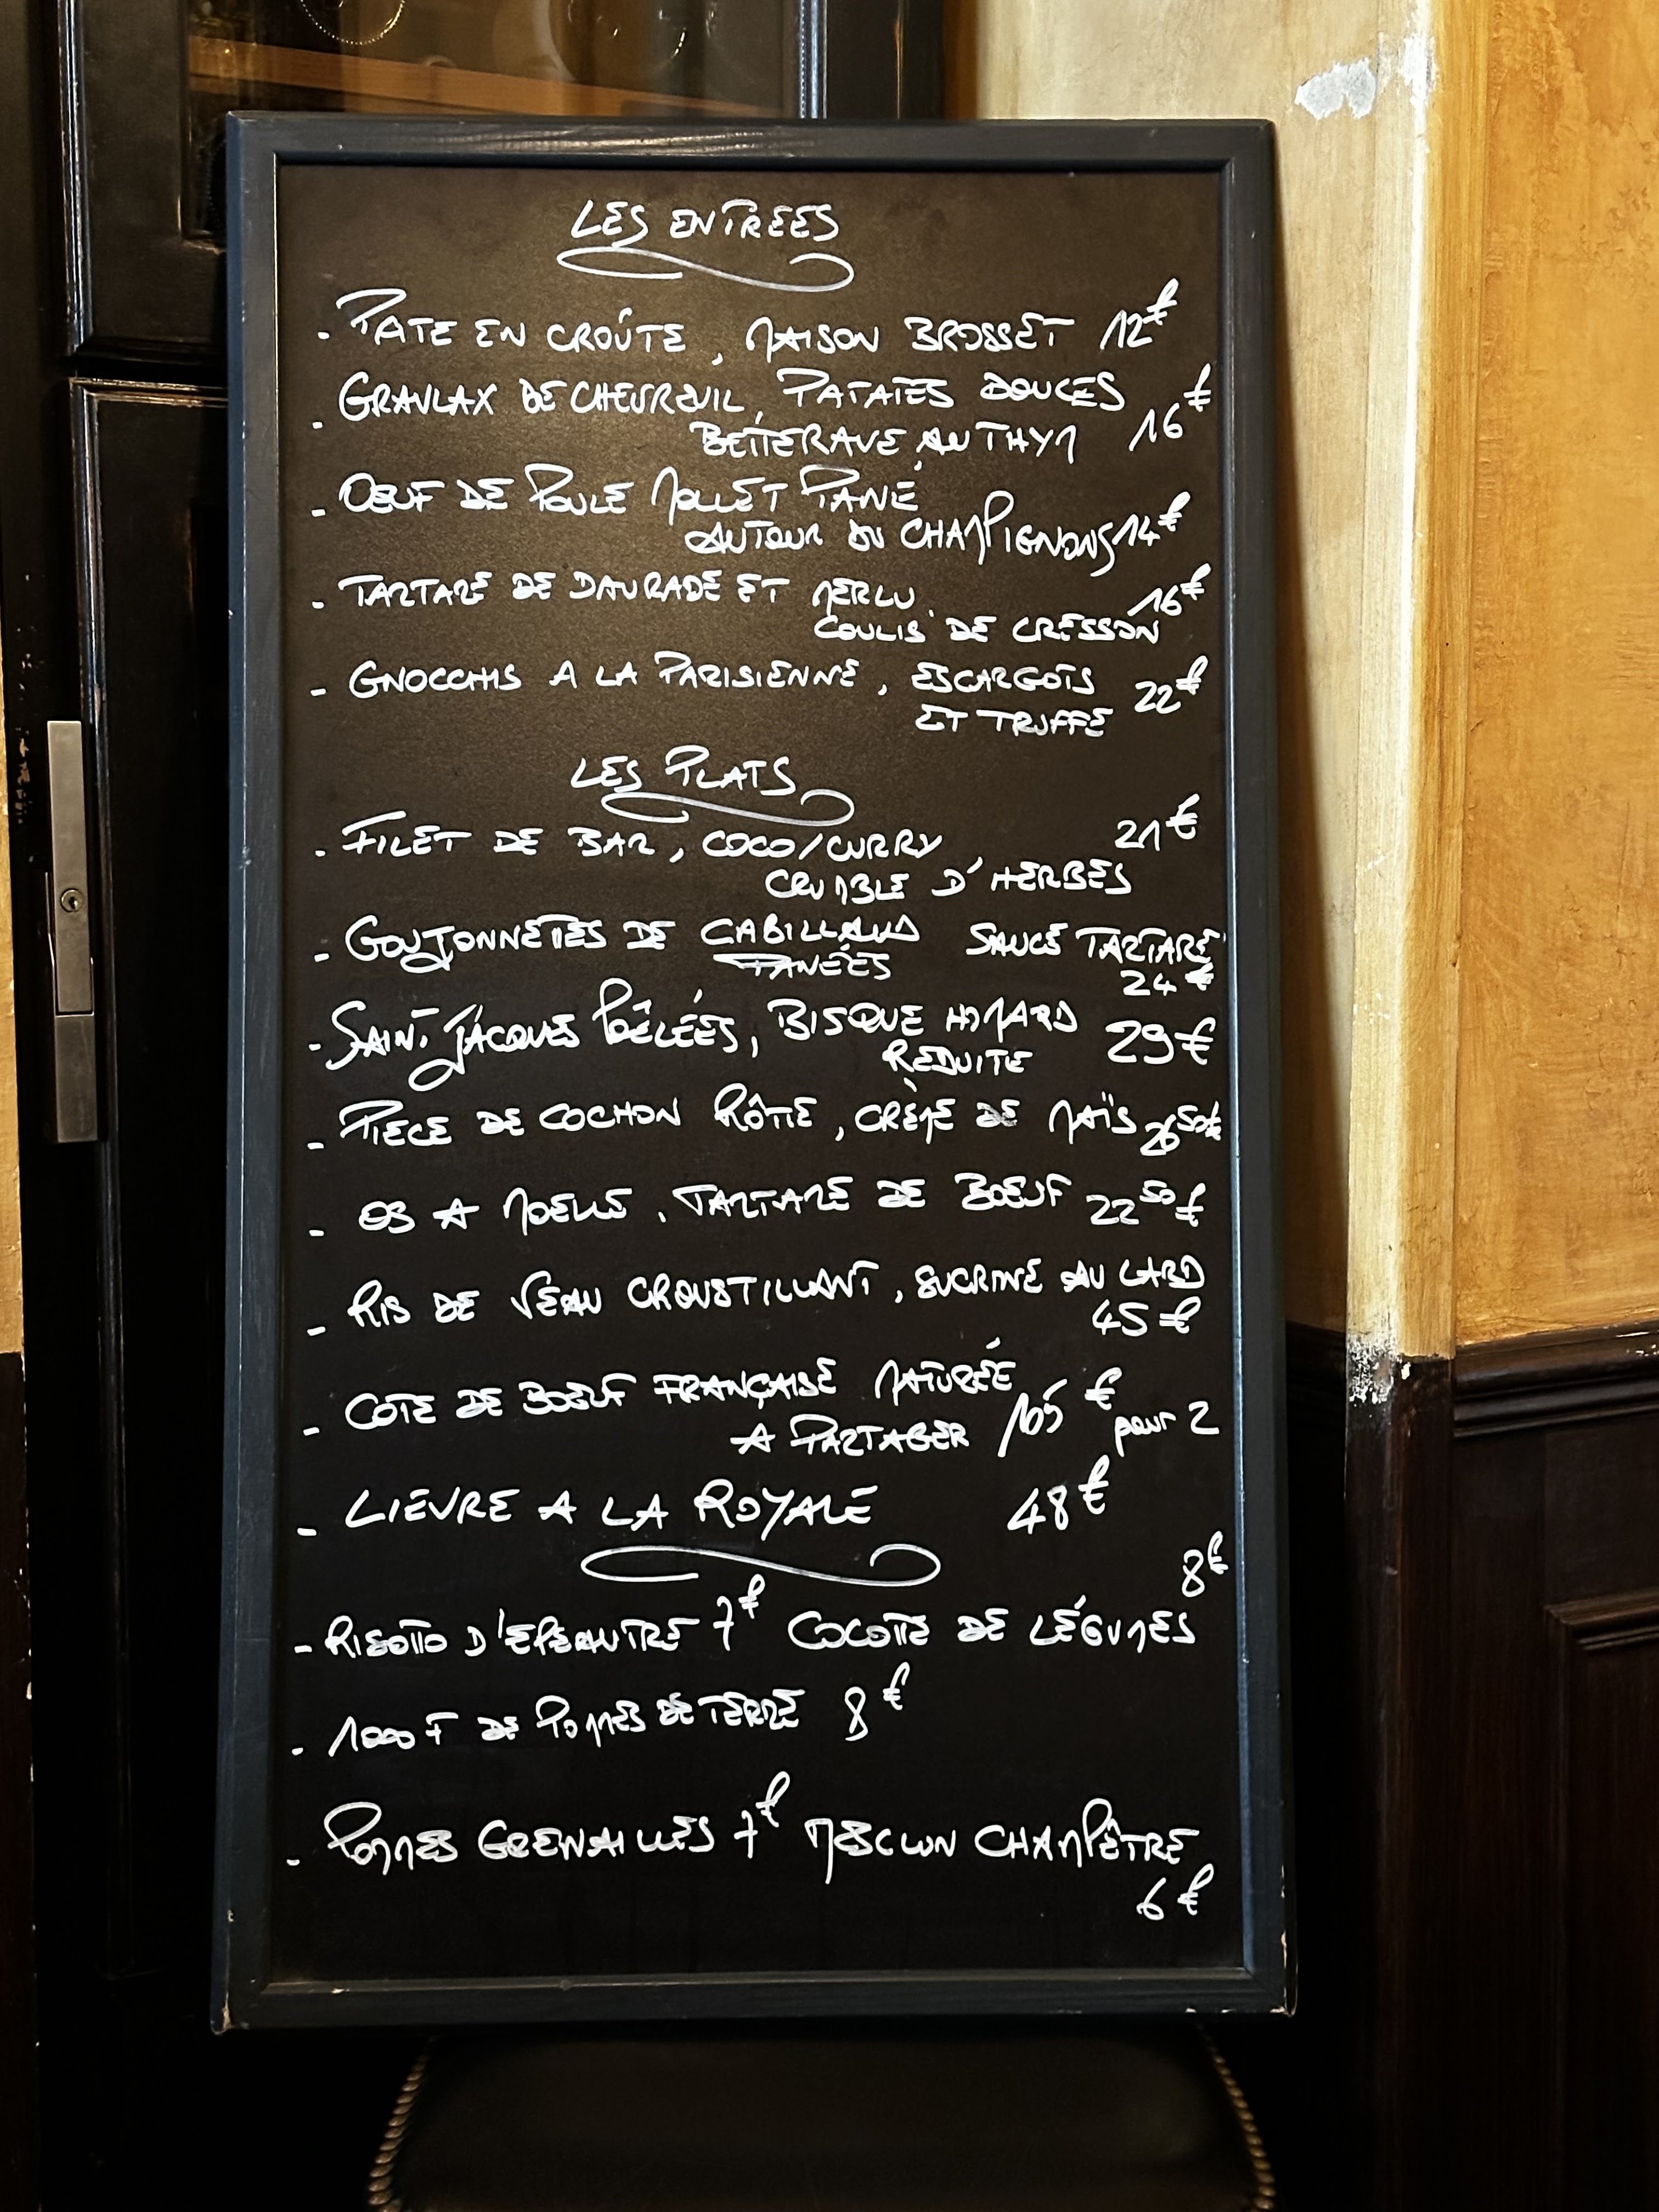 LES ENTREES
- PATE EN CROÛTE, MAISON BROSSET 12€
- GRAVLAX DE CHEVREUIL, PATATES DOUCES
BETTERAVE AU THYM 16€
- OEUF DE POULE MOLLET PANÉ
AUTOUR DU CHAMPIGNONS 14€
- TARTARE DE DAURADE ET MERLU 16€
COULIS DE CRESSON
- GNOCCHIS A LA PARISIENNE, ESCARGOTS 22€
ET TRUFFE
LES PLATS
- FILET DE BAR, COCO/CURRY 21€
CRUMBLE D'HERBES
- GOUJONNETTES DE CABILLAUD SAUCE TARTARE
PANÉES 24€
- SAINT JACQUES POÊLÉES, BISQUE HOMARD 29€
REDUITE
- PIECE DE COCHON RÔTIE, CRÈME DE MAÏS 26 50€
- OS A MOELLE, TARTARE DE BOEUF 22 50€
- RIS DE VEAU CROUSTILLANT, SUCRINE AU LARD
45€
- COTE DE BOEUF FRANÇAISE MATURÉE
A PARTAGER 105€ pour 2
- LIEVRE A LA ROYALE 48€
8€
- RISOTTO D'EPEAUTRE 7€ COCOTTE DE LÉGUMES
- 1000 F DE POMMES DE TERRE 8€
- POMMES GRENAILLES 7€ MESCLUN CHAMPÊTRE
6€